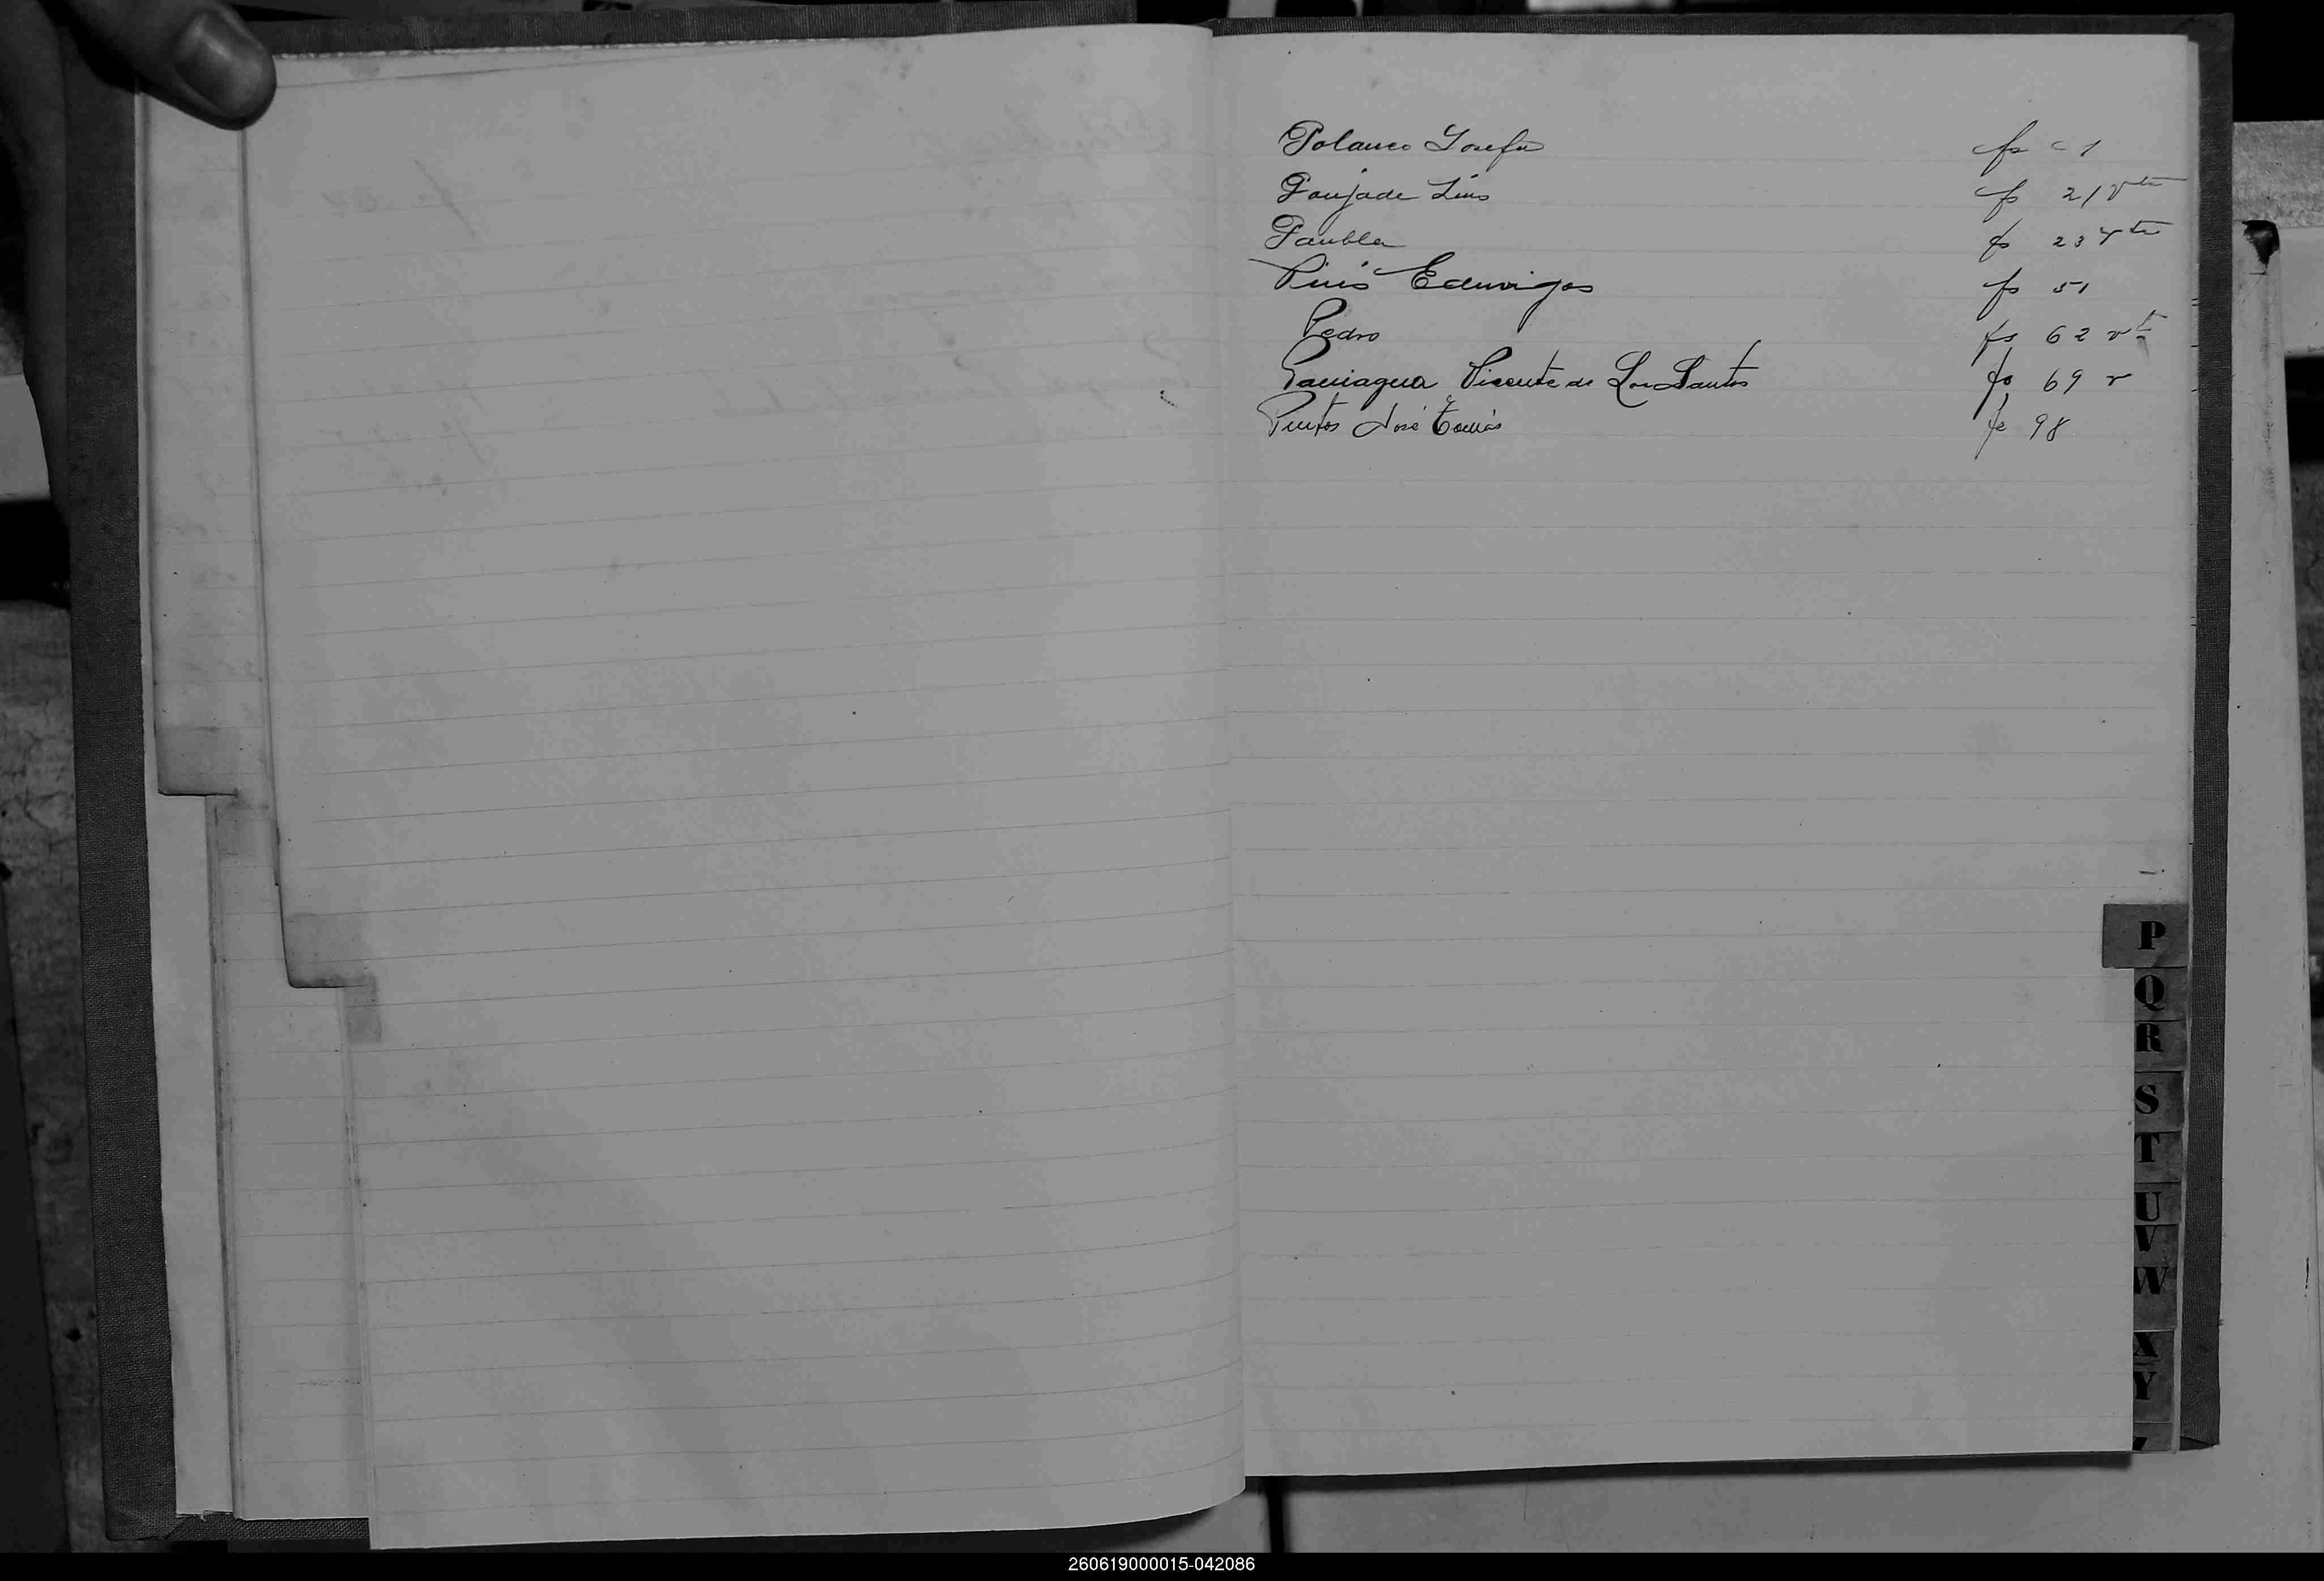 Polanco Josefa fs 1
Poujade Luis fs 21 vta
Paubla fs 23 vta
Piris Eduviges fs 51
Pedro fs 62 vt
Paniagua Vicente de Los Santos fs 69 v
Pintos José Tomás fs 98
P
Q
R
S
T
U
V
W
X
Y
260619000015-042086